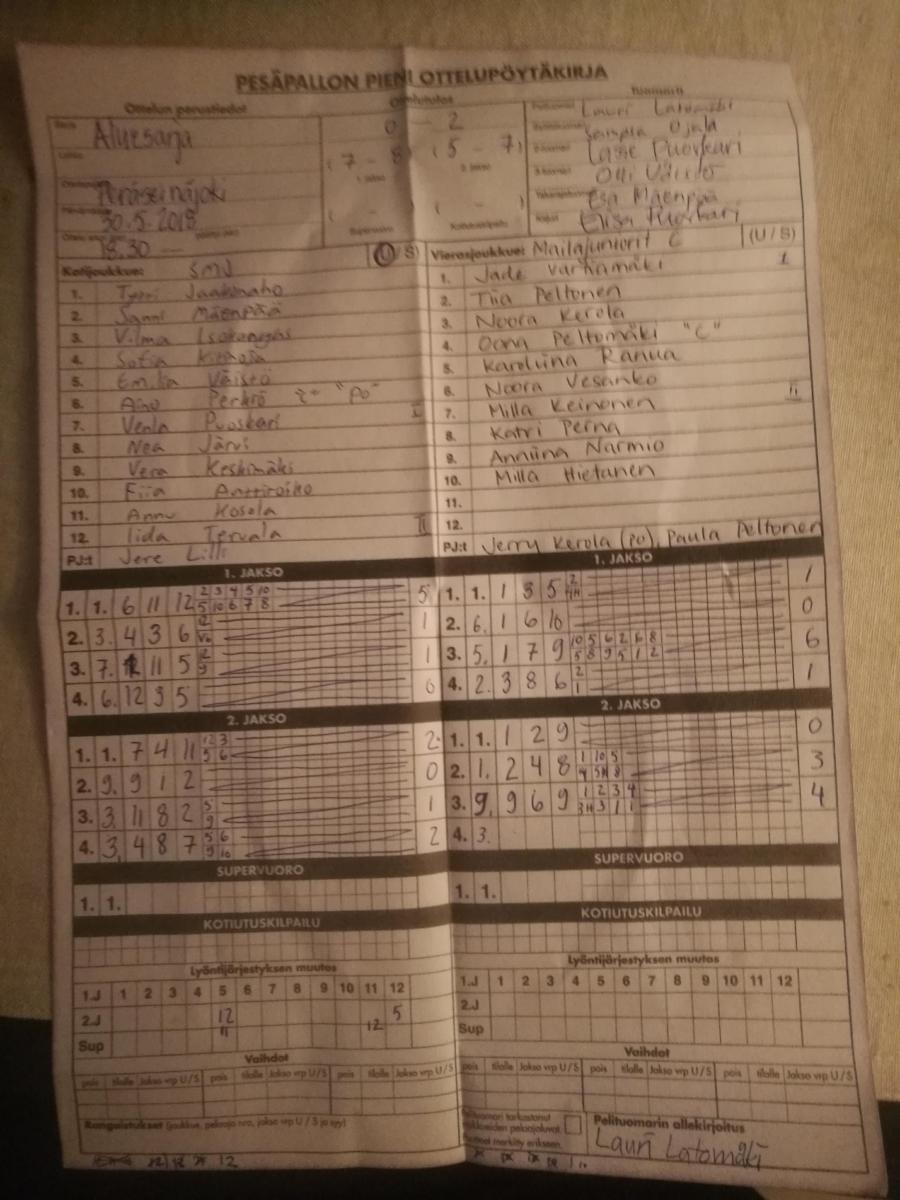 PESÄPALLON PIENI OTTELUPÖYTÄKIRJA
Ottelun perustiedot
Ottelutulos
Tuomarit
Aluesarja
0 - 2
(7 - 8) (5 - 7)
Peräseinäjoki
30.5.2018
18.30
( - ) ( - )
Lauri Latomäki
Sampsa Ojala
Lasse Puoskari
Olli Väistö
Esa Mäenpää
Elisa Puoskari
Kotijoukkue: SMJ (U/S)
1. Jaakonaho
2. Sanni Mäenpää
3. Vilma Isokangas
4. Sofia
5. Emilia Väistö
6. Aino Perkiö "PO"
7. Venla Puoskari I
8. Nea Järvi
9. Vera Keskimäki
10. Fiia Anttiroiko
11. Annu Kosola
12. Iida Tervala II
PJ:t Jere Lilli
Vierasjoukkue: Mailajuniorit C (U/S)
1. Jade Varhamäki I
2. Tiia Peltonen
3. Noora Kerola
4. Oona Peltomäki "C"
5. Karoliina Ranua
6. Noora Vesanko
7. Milla Keinonen II
8. Katri Perna
9. Anniina Narmio
10. Milla Hietanen
11.
12.
PJ:t Jerry Kerola (PO), Paula Peltonen
1. JAKSO
1. 1. 6 11 12 2 3 4 5 10 5
5 10 6 7 8
2. 3. 4 3 6 1
3. 7. 11 5 1
4. 6. 12 3 5 0
2. JAKSO
1. 1. 7 4 11 12 3 2
5 6
2. 9. 9 1 2 0
3. 3. 11 8 2 5 1
9
4. 3. 4 8 7 5 6 2
9 10
SUPERVUORO
1. 1.
KOTIUTUSKILPAILU
1. JAKSO
1. 1. 1 3 5 2 1
2. 6. 1 6 10 0
3. 5. 1 7 9 10 5 6 2 6 8 6
5 8 9 5 1 2
4. 2. 3 8 6 2 1
1
2. JAKSO
1. 1. 1 2 9 0
2. 1. 2 4 8 1 10 5 3
3. 9. 9 6 9 1 2 3 4 4
3H 3 1 1
4. 3.
SUPERVUORO
1. 1.
KOTIUTUSKILPAILU
Lyöntijärjestyksen muutos
1.J 1 2 3 4 5 6 7 8 9 10 11 12
2.J 12 12 5
11
Sup
Vaihdot
pois tilalle Jakso vrp U/S pois tilalle Jakso vrp U/S pois tilalle Jakso vrp U/S
Rangaistukset (joukkue, pelaaja nro, jakso vrp U / S ja syy)
Lyöntijärjestyksen muutos
1.J 1 2 3 4 5 6 7 8 9 10 11 12
2.J
Sup
Vaihdot
pois tilalle Jakso vrp U/S pois tilalle Jakso vrp U/S pois tilalle Jakso vrp U/S
Pelituomarin allekirjoitus
Lauri Latomäki